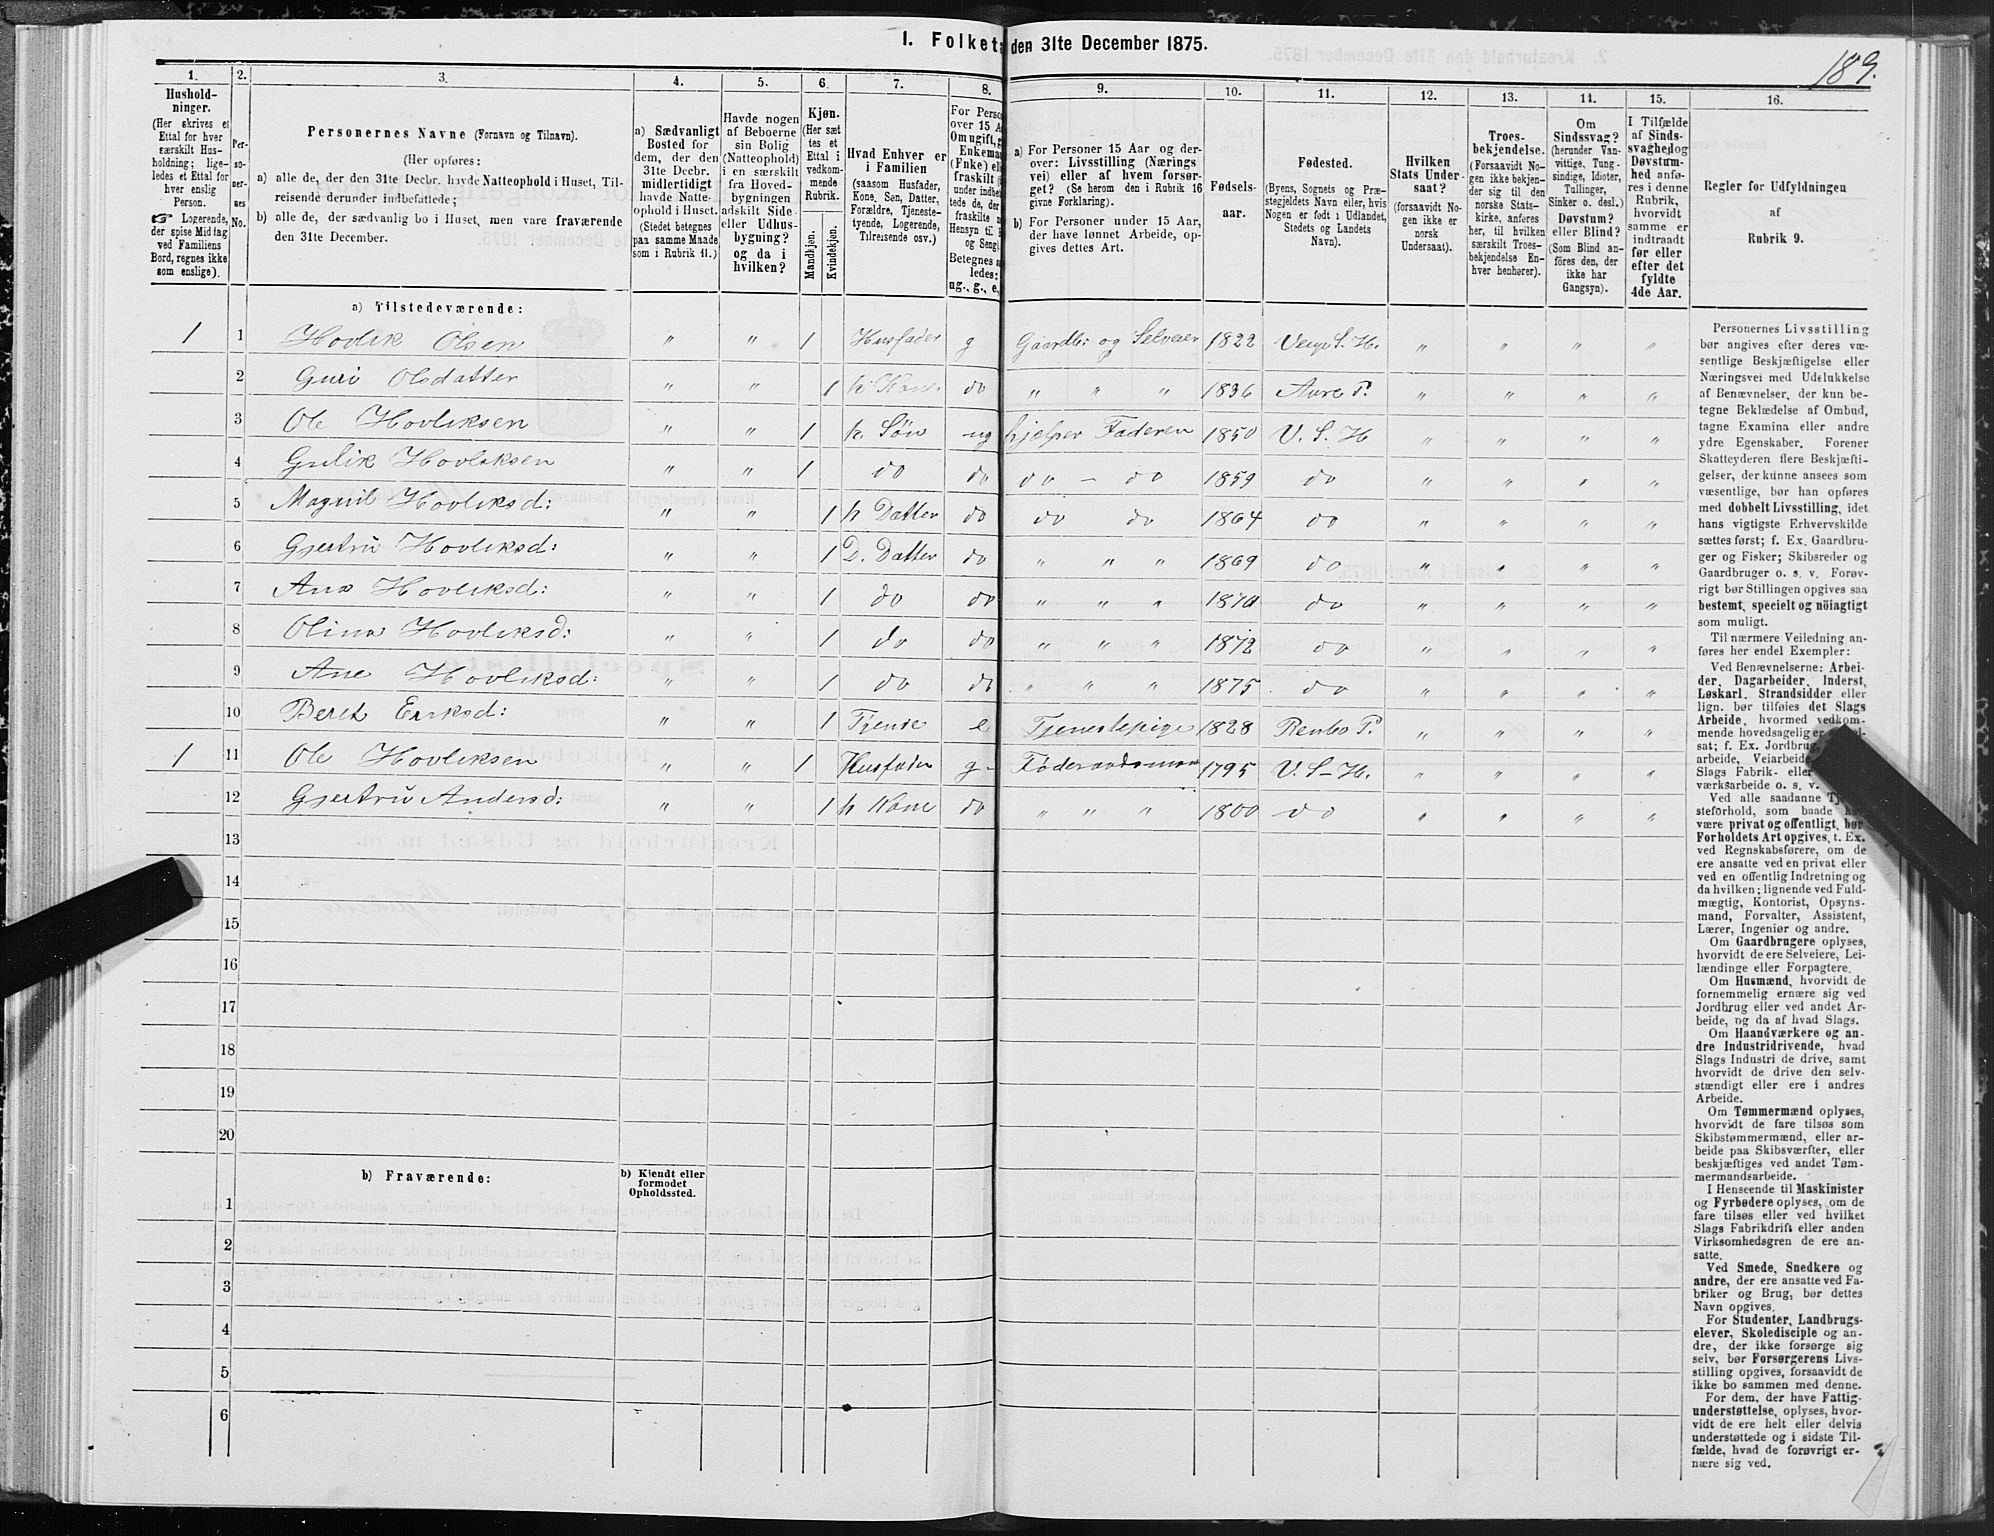 I. Folketa den 31te December 1875.
189.
1. 2. 3. 4. 5. 6. 7. 8. 9. 10. 11. 12. 13. 14. 15. 16.
Hushold-
ninger.
(Her skrives et
Ettal for hver
særskilt Hus-
holdning; lige-
ledes et Ettal for
hver enslig
Person.
☞ Logerende,
der spise Middag
ved Familiens
Bord, regnes ikke
som enslige).
Per-
so-
ner-
nes
No.
Personernes Navne (Fornavn og Tilnavn).
(Her opføres:
a) alle de, der den 31te Decbr. havde Natteophold i Huset, Til-
reisende derunder indbefattede;
b) alle de, der sædvanlig bo i Huset, men vare fraværende
den 31te December.
a) Sædvanligt
Bosted for
dem, der den
31te Decbr.
midlertidigt
havde Natte-
ophold i Huset.
(Stedet betegnes
paa samme Maade
som i Rubrik 11.)
Havde nogen
af Beboerne
sin Bolig
(Natteophold)
i en særskilt
fra Hoved-
bygningen
adskilt Side-
eller Udhus-
bygning?
og da i
hvilken?
Kjøn.
(Her sæt
tes et
Ettal i
vedkom-
mende
Rubrik.
Mandkjøn.
Kvindekjøn.
Hvad Enhver er
i Familien
(saasom Husfader,
Kone, Søn, Datter,
Forældre, Tjeneste-
tyende, Logerende,
Tilreisende osv.)
For Perso
over 15 A
Om ugift, g
Enkeman
(Fnke) elle
fraskilt (
under indbe
tede de, der
fraskilte
Hensyn til
og Seng)
Betegnes
ledes:
ug., g., e,
a) For Personer 15 Aar og der-
over: Livsstilling (Nærings
vei) eller af hvem forsør-
get? (Se herom den i Rubrik 16
givne Forklaring).
b) For Personer under 15 Aar,
der have lønnet Arbeide, op-
gives dettes Art.
Fødsels-
aar.
Fødested.
(Byens, Sognets og Præ-
stegjeldets Navn eller, hvis
Nogen er født i Udlandet,
Stedets og Landets
Navn).
Hvilken
Stats Under-
saat?
(forsaavidt No-
gen ikke er
norsk
Undersaat).
Troes-
bekjendelse.
(Forsaavidt No-
gen ikke bekjen-
der sig til den
norske Stats-
kirke, anføres
her, til hvilken
særskilt Troes-
bekjendelse En-
hver henhører).
Om
Sindssvag?
(herunder Van-
vittige, Tung-
sindige, Idioter,
Tullinger,
Sinker o. desl.)
Døvstum?
eller Blind?
(Som Blind an-
føres den, der
ikke har
Gangsyn).
I Tilfælde
af Sinds-
svaghed og
Døvstum-
hed anfø-
res i denne
Rubrik,
hvorvidt
samme er
indtraadt
før eller
efter det
fyldte
4de Aar.
Regler for Udfyldningen
af
Rubrik 9.
a) Tilstedeværende:
1 1 Hovlik Olsen " " 1 Husfader g Gaardbr og Selveier 1822 S. H. " " " "
2 Guri Olsdatter " " 1 h Kone do " " " 1836 Aure P. " " " "
3 Ole Hovliksen " " 1 h. Søn ug hjelper Faderen 1850 V. S. H " " " "
4 Gulik Hovliksen " " 1 do do do - do 1859 do " " " "
5 Magnil Hovliksd: " " 1 h Datter do do do 1864 do " " " "
6 Gjertru Hovliksd: " " 1 D. Datter do " " " 1869 do " " " "
7 Ana Hovliksd: " " 1 do do " " " 1870 do " " " "
8 Olina Hovliksd: " " 1 do do " " " 1872 do " " " "
9 Ane Hovliksd: " " 1 do do " " " 1875 do " " " "
10 Beret Eriksd: " " 1 Tjende e Tjenestepige 1828 P. " " " "
1 11 Ole Hovliksen " " 1 Husfader g Føderaadsman 1795 V. S-H. " " " "
12 Gjertru Andersd: " " 1 h Kone do " " " 1800 do " " " "
13
14
15
16
17
18
19
20
b) Fraværende:
b) Kjendt eller
formodet
Opholdssted.
1
2
3
4
5
6
Personernes Livsstilling
bør angives efter deres væ-
sentlige Beskjæftigelse eller
Næringsvei med Udelukkelse
af Benævnelser, der kun be-
tegne Beklædelse af Ombud,
tagne Examina eller andre
ydre Egenskaber. Forener
Skatteyderen flere Beskjæfti-
gelser, der kunne ansees som
væsentlige, bør han opføres
med dobbelt Livsstilling, idet
hans vigtigste Erhvervskilde
sættes først; f. Ex. Gaardbru-
ger og Fisker; Skibsreder og
Gaardbruger o. s. v. Forøv-
rigt bør Stillingen opgives saa
bestemt, specielt og nöiagtigt
som muligt.
Til nærmere Veiledning an-
føres her endel Exempler:
Ved Benævnelserne: Arbei-
der, Dagarbeider, Inderst,
Løskarl, Strandsidder eller
lign. bør tilføies det Slags
Arbeide, hvormed vedkom-
mende hovedsagelig er
sat; f. Ex. Jordbrug,
arbeide, Veiarbeide
Slags Fabrik- eller
værksarbeide o. s. v.
Ved alle saadanne
stefo rhold, som baade
være privat og offentligt, bør
Forholdets Art opgives, t. Ex.
ved Regnskabsførere, om de
ere ansatte ved en privat eller
ved en offentlig Indretning og
da hvilken; lignende ved Fuld-
mægtig, Kontorist, Opsyns-
mand, Forvalter, Assistent,
Lærer, Ingeniør og andre.
Om Gaardbrugere oplyses,
hvorvidt de ere Selveiere, Lei-
lændinge eller Forpagtere.
Om Husmænd, hvorvidt de
fornemmelig ernære sig ved
Jordbrug eller ved andet Ar-
beide, og da af hvad Slags.
Om Haandværkere og an-
dre Industridrivende, hvad
Slags Industri de drive, samt
hvorvidt de drive den selv-
stændigt eller ere i andres
Arbeide.
Om Tømmermænd oplyses,
hvorvidt de fare tilsøs som
Skibstømmermænd, eller ar-
beide paa Skibsværfter, eller
beskjæftiges ved andet Tøm-
mermandsarbeide.
I Henseende til Maskinister
og Fyrbødere oplyses, om de
fare tilsøs eller ved hvilket
Slags Fabrikdrift eller anden
Virksomhedsgren de ere an-
satte.
Ved Smede, Snedkere og
andre, der ere ansatte ved Fa-
briker og Brug, bør dettes
Navn opgives.
For Studenter, Landbrugs-
elever, Skoledisciple og an-
dre, der ikke forsørge sig
selv, bør Forsørgerens Livs-
stilling opgives, forsaavidt de
ikke bo sammen med denne.
For dem, der have Fattig-
understøttelse, oplyses, hvor-
vidt de ere helt eller delvis
understøttede og i sidste Til-
fælde, hvad de forøvrigt er-
nære sig ved.